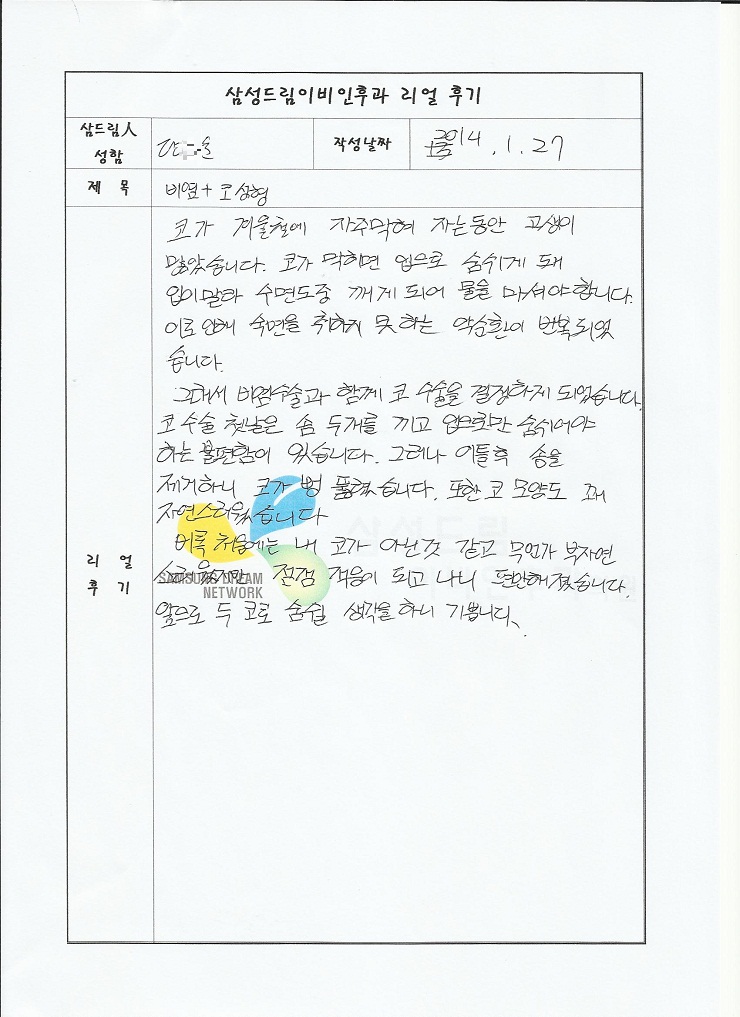 삼성드림이비인후과 리얼 후기
삼드림人
성함
작성날짜
2014.1.27
제 목
비염+코성형
코가 겨울철에 자주막혀 자는동안 고생이
많았습니다. 코가 막히면 입으로 숨쉬게 돼
입이말라 수면도중 깨게 되어 물을 마셔야합니다.
이로인해 숙면을 취하지 못하는 악순환이 반복되었
습니다.
그래서 비염수술과 함께 코 수술을 결정하게 되었습니다.
코 수술 첫날은 솜 두개를 끼고 입으로만 숨쉬어야
하는 불편함이 있습니다. 그러나 이틀후 솜을
제거하니 코가 뻥 뚫렸습니다. 또한 코 모양도 꽤
자연스러웠습니다
비록 처음에는 내 코가 아닌것 같고 무언가 부자연
스러웠지만 점점 적응이 되고 나니 편안해졌습니다.
앞으로 두 코로 숨쉴 생각을 하니 기쁩니다.
리 얼
후 기
삼성드림
SAMSUNG DREAM
NETWORK